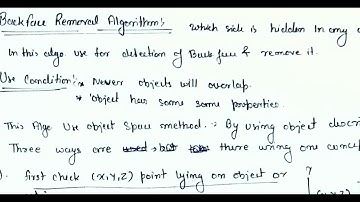 Backface Removal Algorithm:- Which side is hidden in any
In this algo. use for detection of Back face & remove it.
Use Condition:- * Never objects will overlap.
* Object has some some properties.
This Algo Use object Space method. :- By using object descri
Three ways are used but there using one concep
1. first check (x,y,z) point lying on object or
y